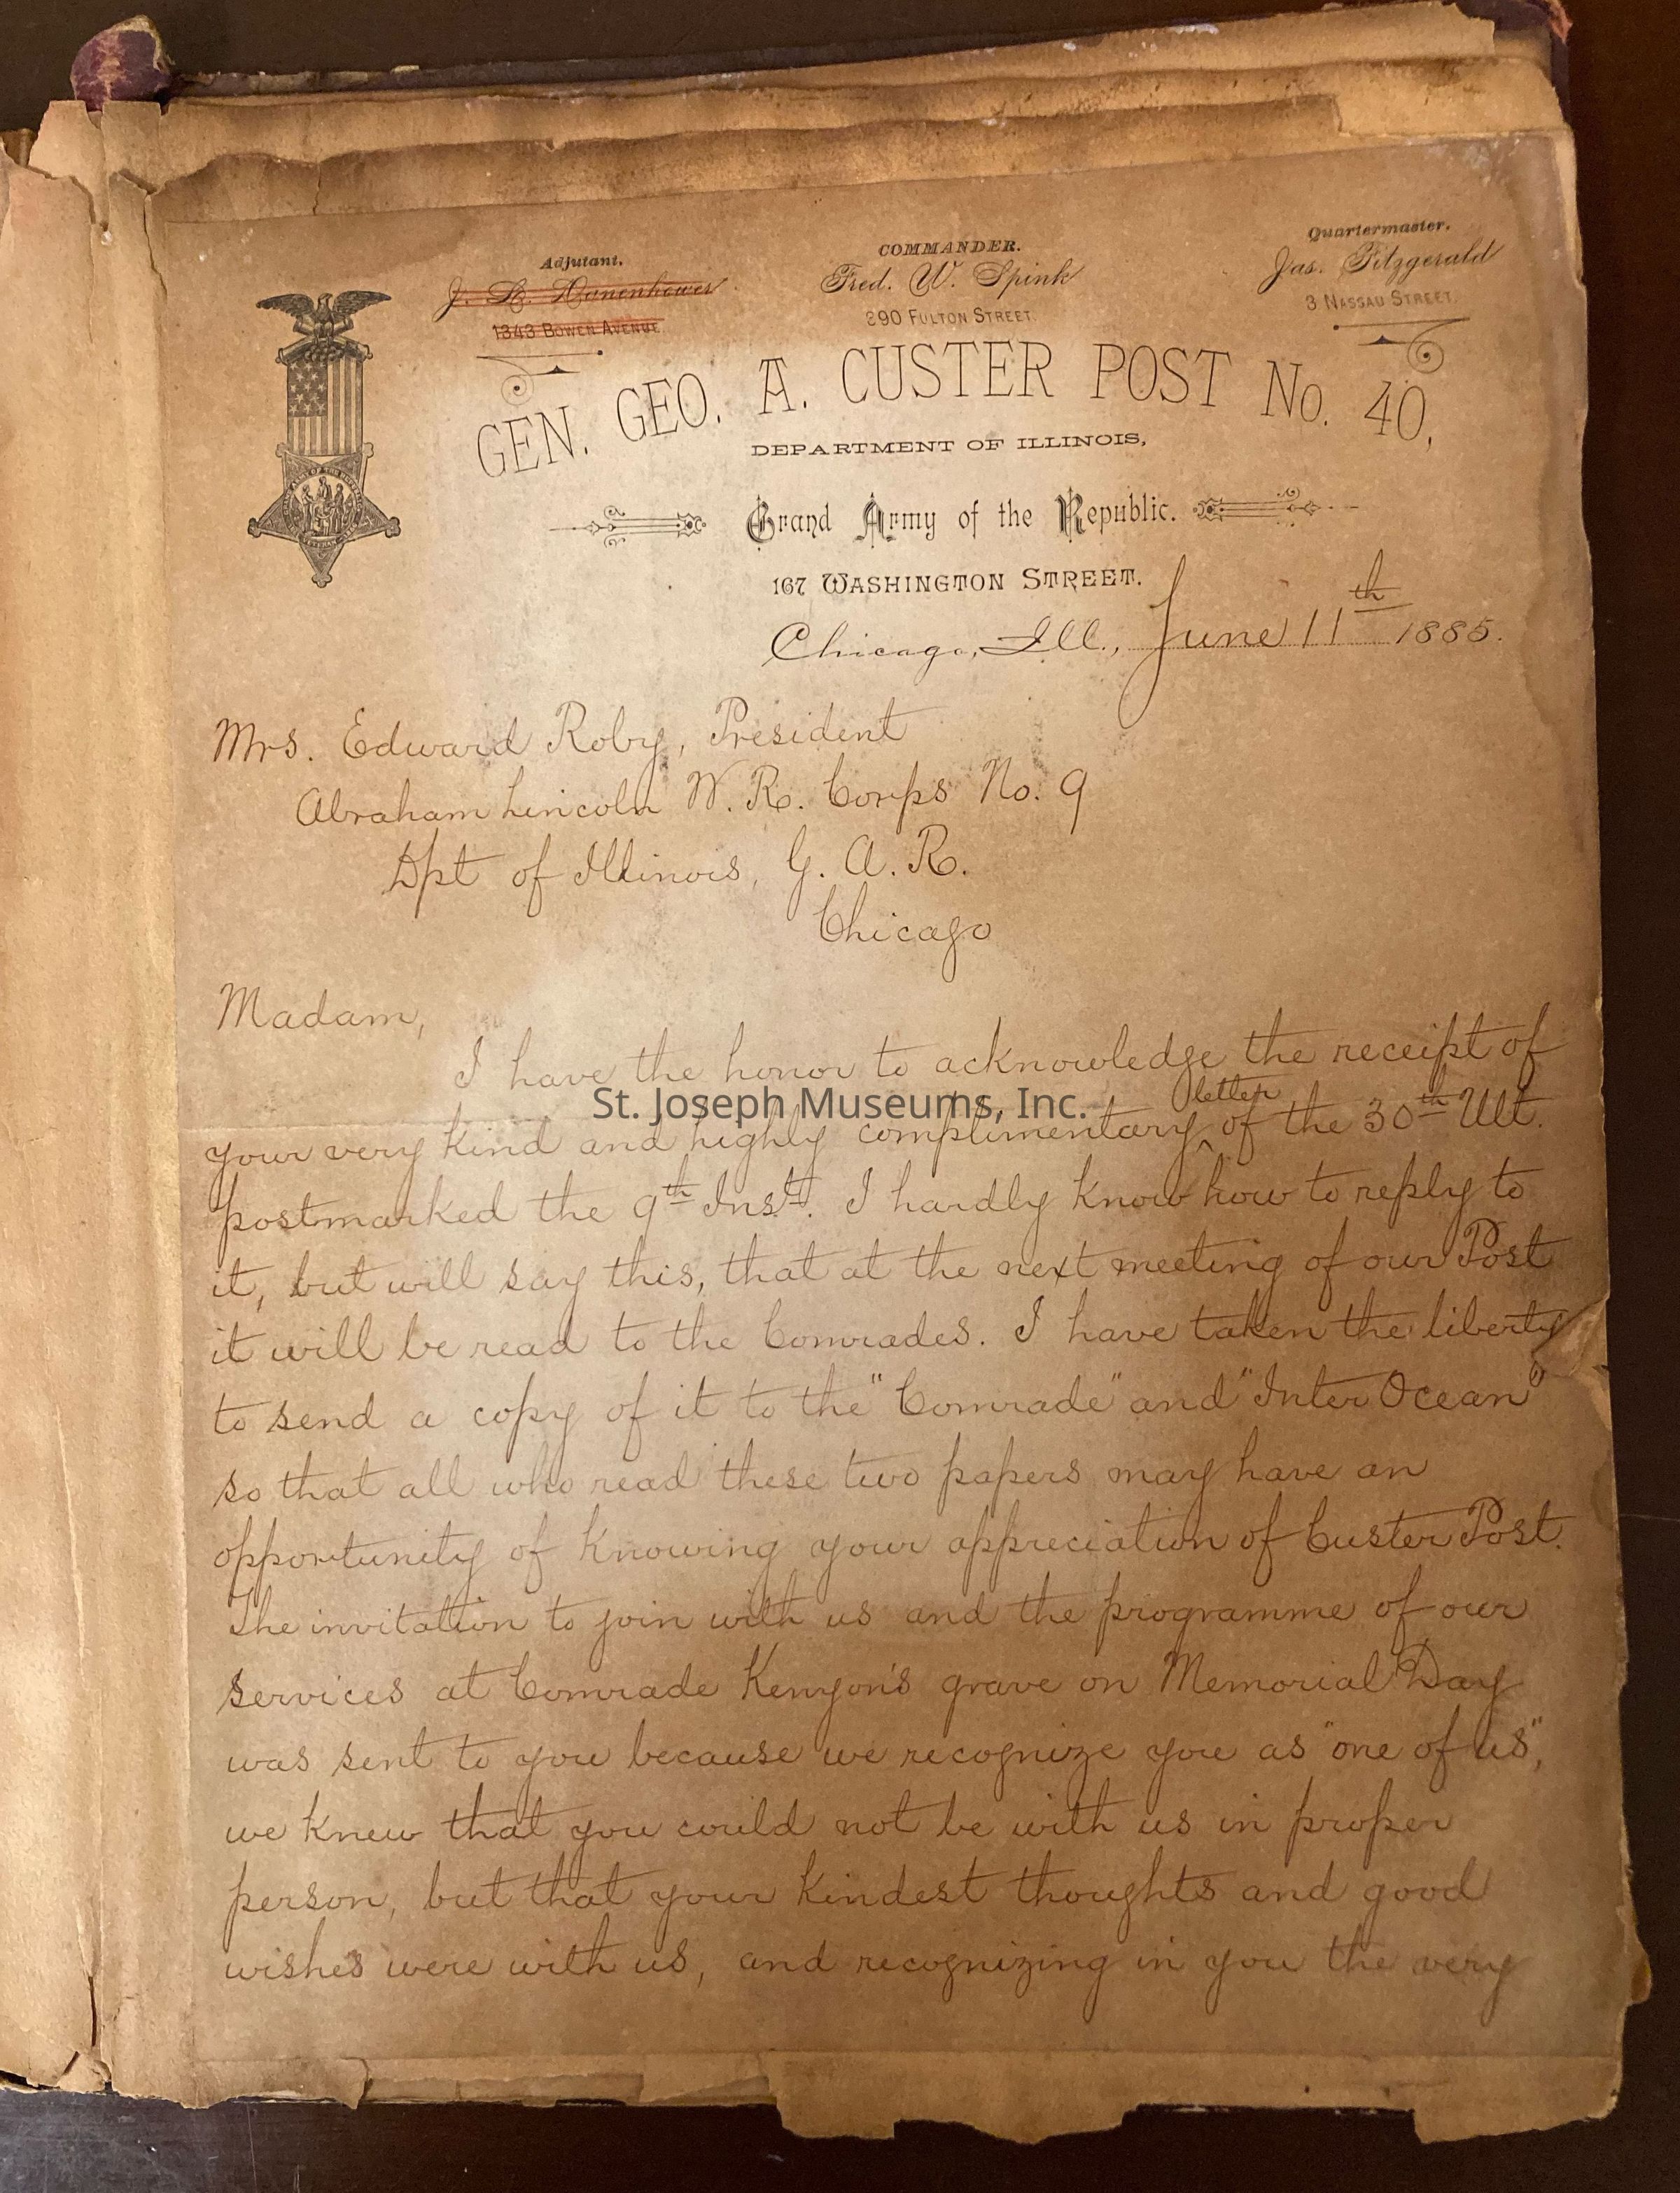 Adjutant.
J. L. Danenhower
1343 BOWEN AVENUE.
COMMANDER.
Fred. W. Spink
290 FULTON STREET.
Quartermaster.
Jas. Fitzgerald
3 NASSAU STREET.
GEN. GEO. A. CUSTER POST No. 40,
DEPARTMENT OF ILLINOIS,
Grand Army of the Republic.
167 WASHINGTON STREET.
Chicago, Ill., June 11th 1885.
Mrs. Edward Roby, President
Abraham Lincoln W. R. Corps No. 9
Dpt of Illinois, G. A. R.
Chicago
Madam,
I have the honor to acknowledge the receipt of
your very kind and highly complimentary letter of the 30th Ult.
postmarked the 9th Inst. I hardly know how to reply to
it, but will say this, that at the next meeting of our Post
it will be read to the Comrades. I have taken the liberty
to send a copy of it to the "Comrade" and "Inter Ocean"
so that all who read these two papers may have an
opportunity of knowing your appreciation of Custer Post.
The invitation to join with us and the programme of our
services at Comrade Kenyon's grave on Memorial Day
was sent to you because we recognize you as "one of us",
we knew that you could not be with us in proper
person, but that your kindest thoughts and good
wishes were with us, and recognizing in you the very
St. Joseph Museums, Inc.